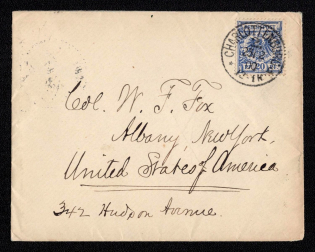 CHARLOTTENBURG
20
Col. W. F. Fox
Albany, New York,
United States of America
342 Hudson Avenue.